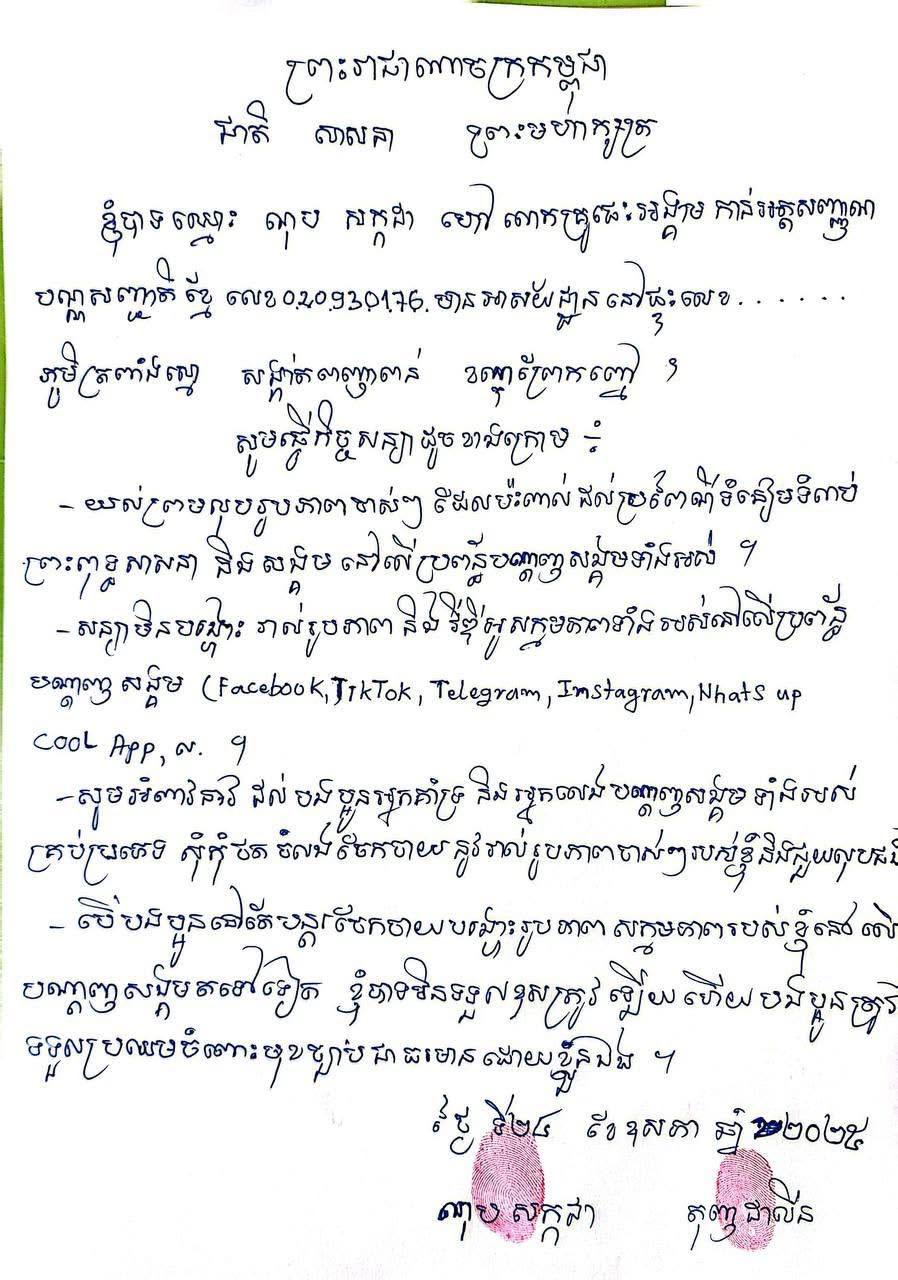 ព្រះរាជាណាចក្រកម្ពុជា
ជាតិ សាសនា ព្រះមហាក្សត្រ
ខ្ញុំបាទឈ្មោះ ណុប សក្កដា ហៅ លោកគ្រូធេះអង្គាម កាន់អត្តសញ្ញាណ
បណ្ណសញ្ជាតិខ្មែ លេខ020930176. មានអាស័យដ្ឋាន នៅផ្ទះលេខ......
ភូមិត្រពាំងស្មោ សង្កាត់ពញាពន់ ខណ្ឌព្រែកព្នៅ ។
សូមធ្វើកិច្ចសន្យាដូចខាងក្រោម ÷
- យល់ព្រមលុបរូបភាពចាស់ៗ ដែលប៉ះពាល់ដល់ប្រពៃណីទំនៀមទំលាប់
ព្រះពុទ្ធសាសនា និង សង្គម នៅលើប្រព័ន្ធបណ្តាញសង្គមទាំងអស់ ។
- សន្យាមិនបង្ហោះ រាល់រូបភាព និង វីឌីអូសកម្មភាពទាំងអស់នៅលើប្រព័ន្ធ
បណ្តាញសង្គម (Facebook, TikTok, Telegram, Instagram, Whats up
COOL App, ល. ។
- សូមអំពាវនាវ ដល់បងប្អូនអ្នកគាំទ្រ និងអ្នកលេងបណ្តាញសង្គម ទាំងអស់
គ្រប់ប្រភេទ សុំកុំថត ចំលង ចែកចាយ នូវរាល់រូបភាពចាស់ៗរបស់ខ្ញុំនិងជួយលុបផង
- បើបងប្អូននៅតែបន្តចែកចាយបង្ហោះរូបភាព សកម្មភាពរបស់ខ្ញុំនៅលើ
បណ្តាញសង្គមតទៅទៀត ខ្ញុំបាទមិនទទួលខុសត្រូវឡើយ ហើយបងប្អូនត្រូវ
ទទួលប្រឈមចំពោះមុខច្បាប់ជាធរមានដោយខ្លួនឯង ។
ថ្ងៃ ទី២៤ ខែឧសភា ឆ្នាំ ២០២៥
ណុប សក្កដា តុញ ដាលីន